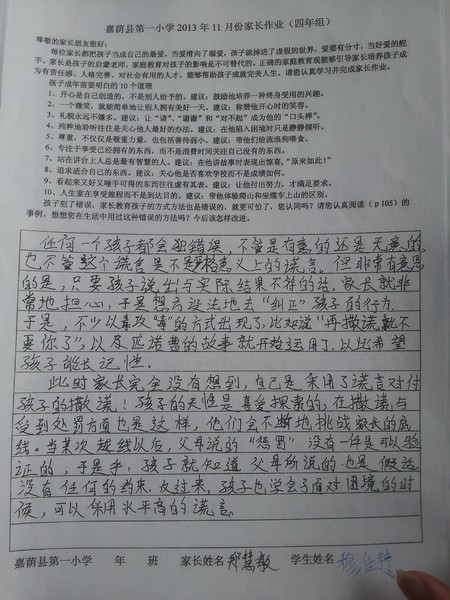 嘉荫县第一小学 2013 年 11 月份家长作业（四年组）
尊敬的家长朋友您好：
每位家长都把孩子当成自己的最爱，当爱滑向了溺爱，孩子就掉进了虚假的世界，爱要有分寸，当好爱的舵
手。家长是孩子的启蒙老师，家庭教育对孩子的影响是不可替代的。正确的家庭教育观能够引导家长培养孩子成
为有责任感、人格完善、对社会有用的人才，能够帮助孩子成就完美人生。请您认真学习并完成家长作业。
孩子成年前要明白的 10 个道理
1、开心是自己创造的，不是别人给予的。建议：鼓励他培养一种终身受用的兴趣。
2、一个微笑，就能简单地让别人拥有美好一天。建议：称赞他开心时的笑容。
3、礼貌永远不嫌多。建议：让“请”、“谢谢”和“对不起”成为他的“口头禅”。
4、纯粹地聆听往往是关心他人最好的办法。建议：在他陷入困境时只是静静倾听。
5、尊重，不仅仅是敬重力量，也包括善待弱小。建议：带他们给流浪狗喂食。
6、专注于享受已经拥有的东西，而不是浪费时间关注自己没有的东西。
7、站在讲台上人总是最有智慧的人。建议：在他讲故事时表现出惊喜，“原来如此！”
8、追求适合自己的东西。建议：关心他是否喜欢学校而不是成绩如何。
9、看起来又好又唾手可得的东西往往虚有其表。建议：让他付出努力，才满足要求。
10、人生重在享受旅程而不是到达目的。建议：带他体验爬山和坐缆车上山的区别。
孩子犯了错误，家长教育孩子的方式方法也是错误的，就更可怕了，您认同吗？请您认真阅读（p105）的
事例，想想您在生活中用过这种错误的方法吗？今后该怎样改进。
任何一个孩子都会犯错误，不管是有意的还是无意的
也不管这个谎言是不是严格意义上的谎言。但非常有意思
的是，只要孩子说出与实际结果不符的话，家长就非
常地担心，于是想方设法地去“纠正”孩子的行为
于是，不少以毒攻“毒”的方式出现了，比如说“再撒谎就不
要你了”，以及匹诺曹的故事就开始运用了，以此希望
孩子能长记性。
此时家长完全没有想到，自己是采用了谎言对付
孩子的撒谎！孩子的天性是喜爱探索的，在撒谎与
受到处罚方面也是这样，他们会不断地挑战家长的底
线。当某次越线以后，父母说的“惩罚”没有一件是可以验
证的，于是乎，孩子就知道父母所说的也是假话
没有任何的约束，反过来，孩子也学会了面对困境的时
候，可以采用水平高的谎言。
嘉荫县第一小学 年 班 家长姓名 郑慧敏 学生姓名